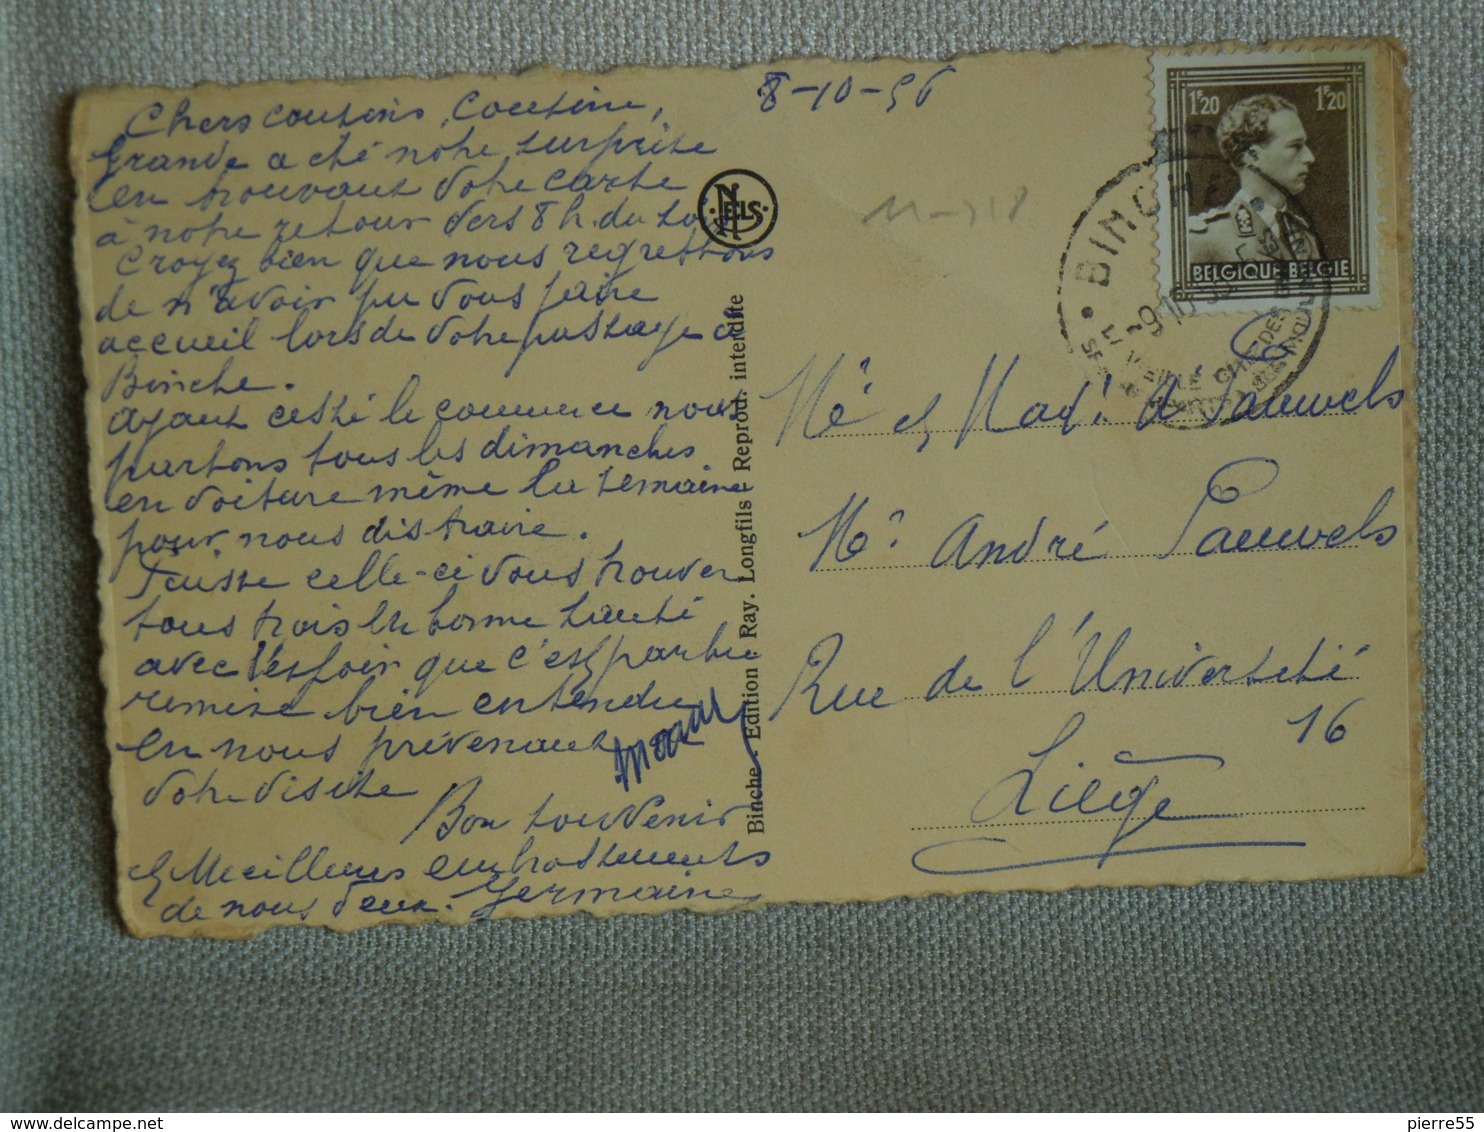 8-10-56
Chers cousins, cousine,
Grande a été notre surprise
en trouvant votre carte
à notre retour vers 8 h. du soir
Croyez bien que nous regrettons
de n'avoir pu vous faire
accueil lors de votre passage à
Binche.
Ayant cessé le commerce nous
partons tous les dimanches
en voiture même la semaine
pour nous distraire.
Puisse celle-ci vous trouver
tous trois en bonne santé
avec l'espoir que c'est partie
remise bien entendu
en nous prévenant
votre visite
Bon souvenir
et Meilleurs embrassements
de nous deux. Germaine
NELS
Binche - Edition Ray. Longfils Reprod. interdite
1F20 1F20
BELGIQUE BELGIE
BINCHE
-9.10
Mr et Mad. A Pauwels
Mr. André Pauwels
Rue de l'Université
16
Liège
pierre55